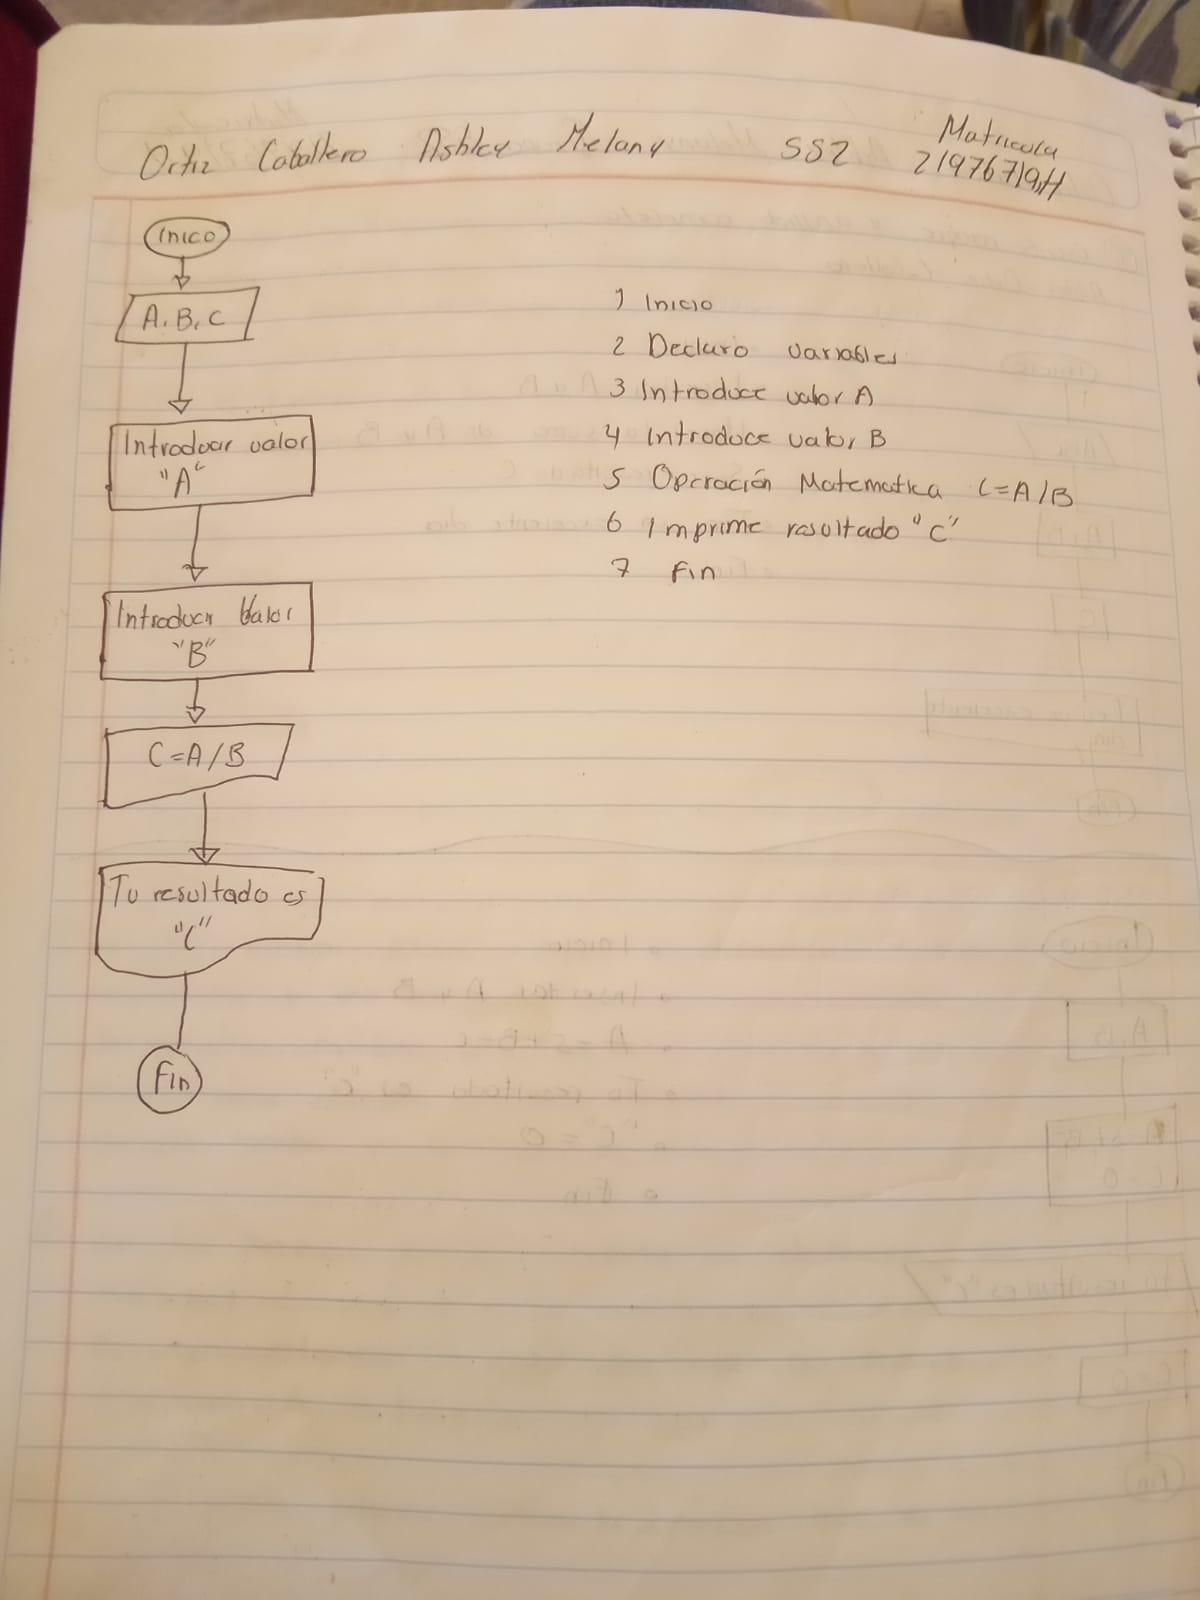 Ortiz Caballero Ashley Melany SS2 Matricula
Inico
A, B, C
Introducir valor
"A"
Introducir Valor
"B"
C=A/B
Tu resultado es
"C"
Fin
1 Inicio
2 Declaro variables
3 Introduce valor A
4 Introduce valor B
5 Operación Matematica C=A/B
6 Imprime resultado "C"
7 Fin